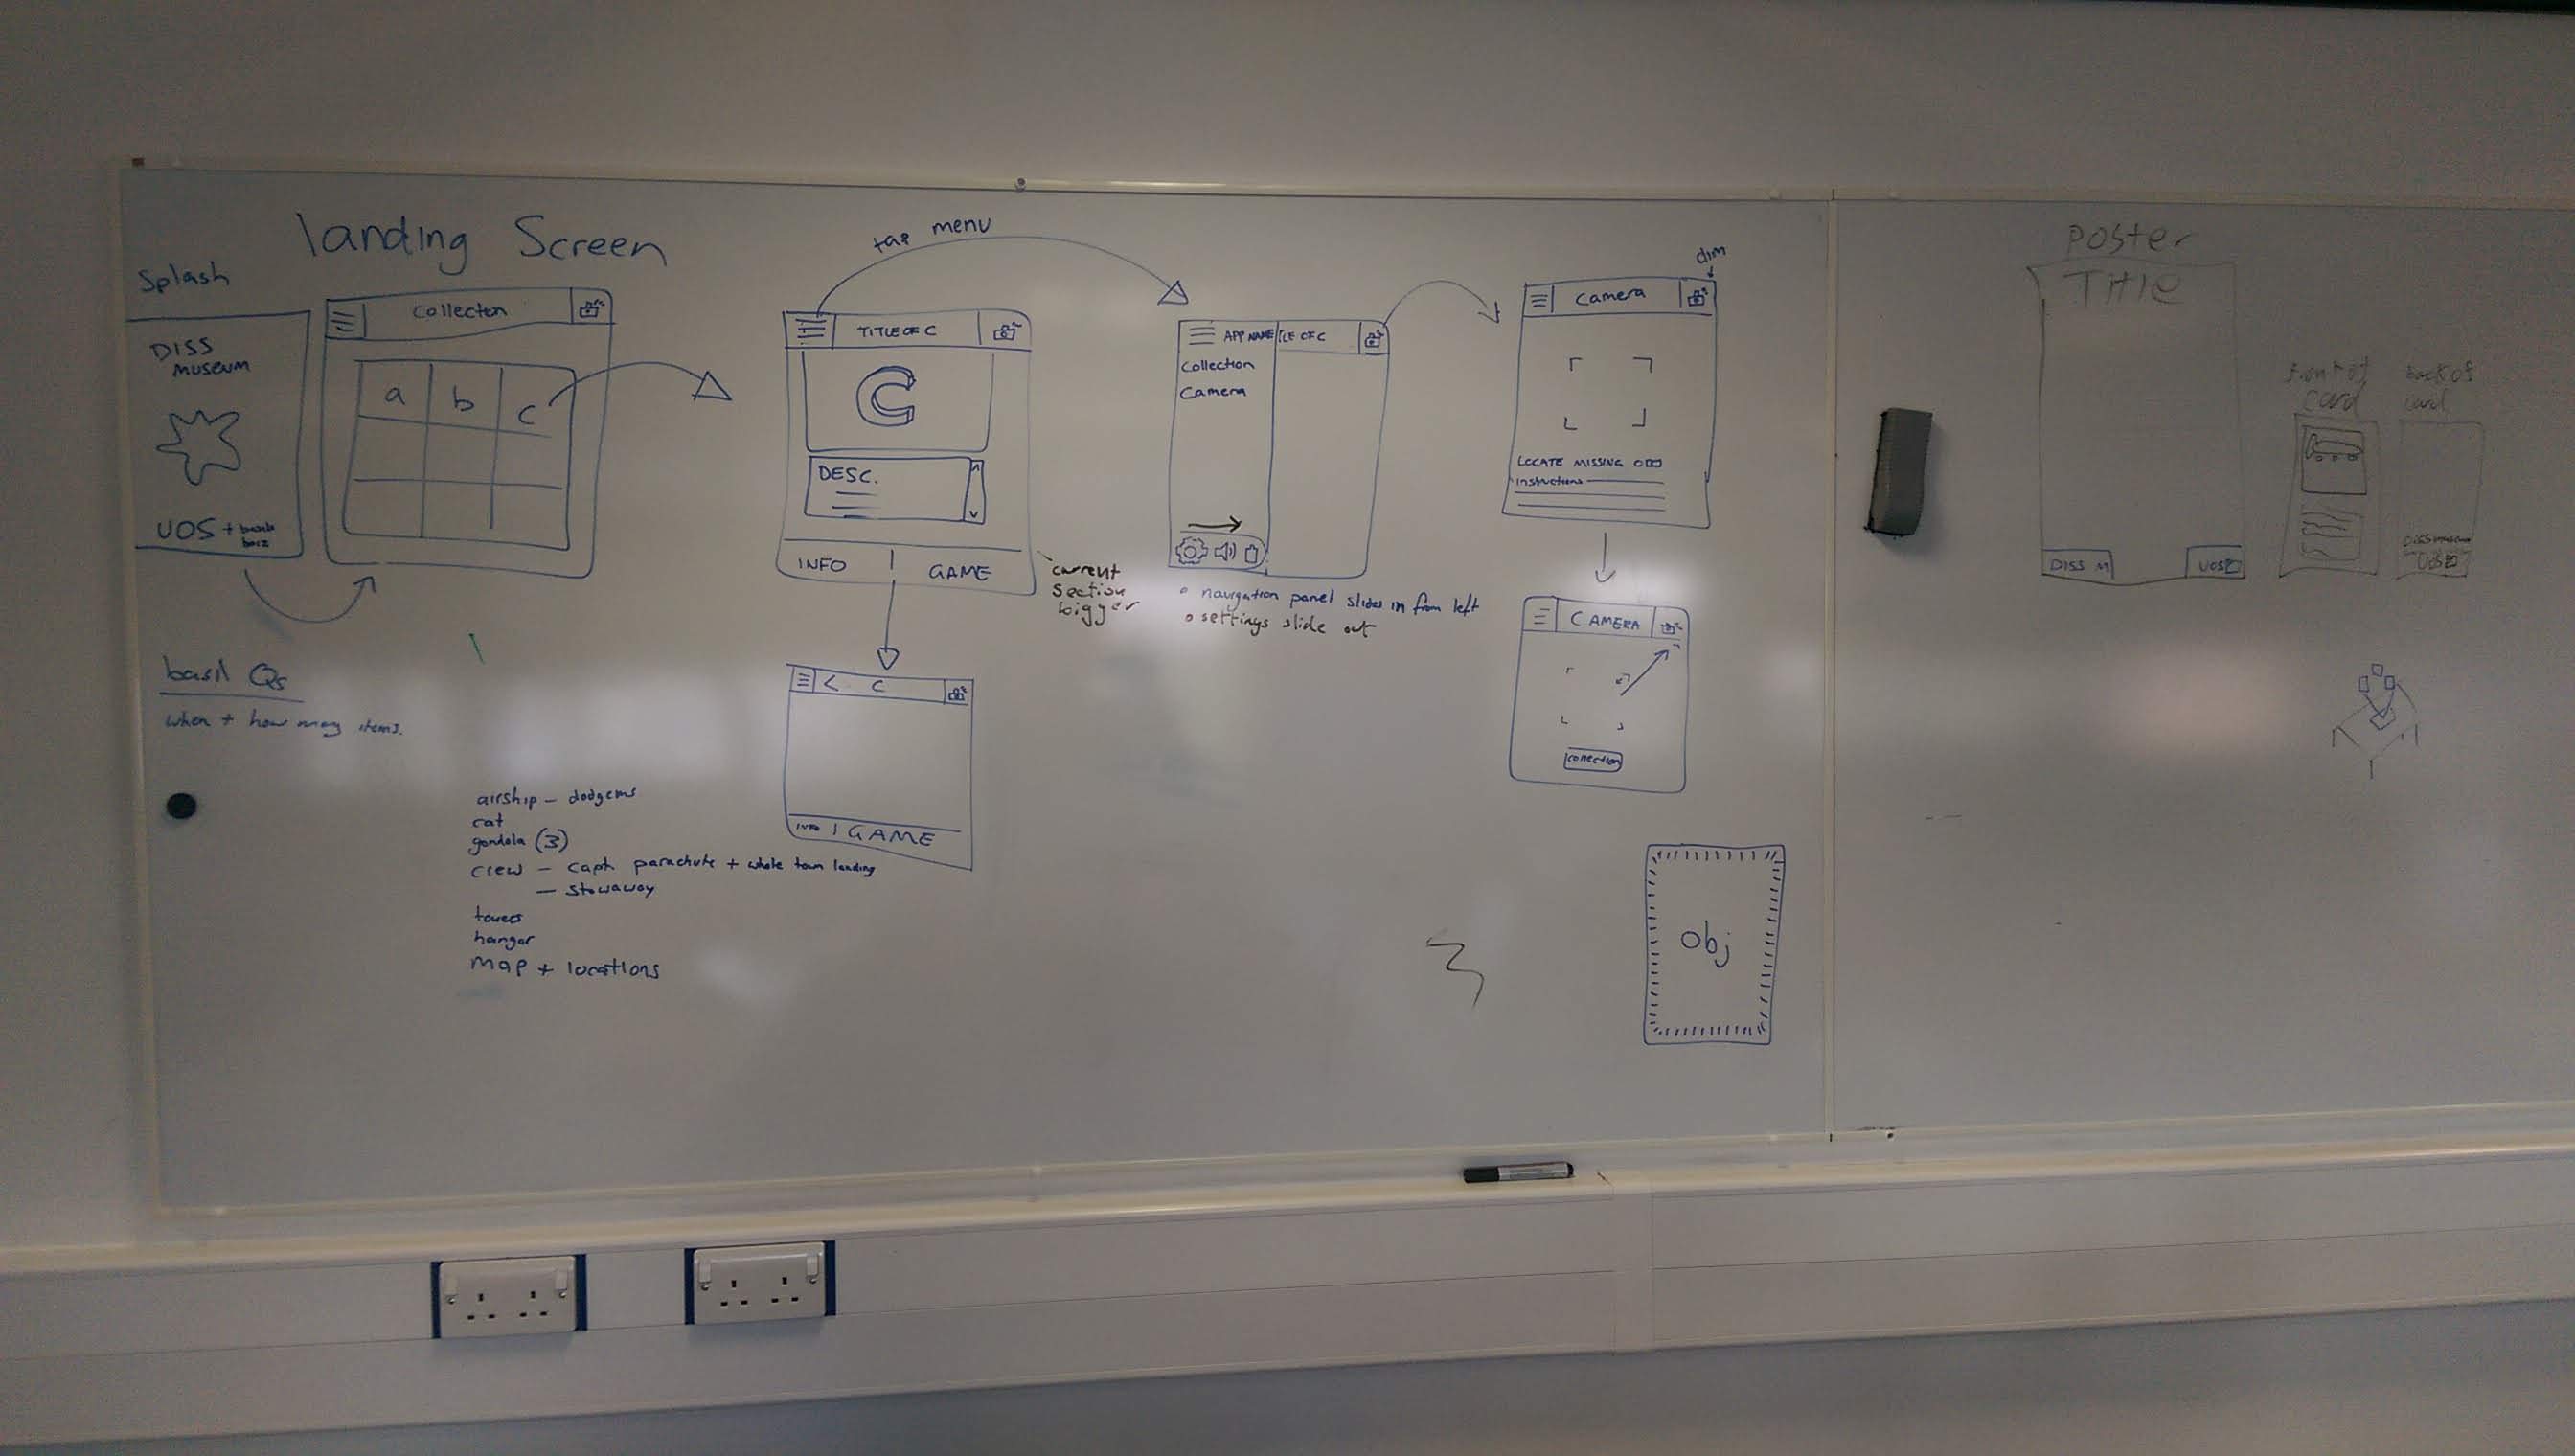 landing Screen
Splash
DISS
MUSEUM
UOS +
Collection
a b c
tap menu
TITLE OF C
C
DESC.
INFO | GAME
current
section
bigger
< C
INFO | GAME
APP NAME TLE OF C
Collection
Camera
• navigation panel slides in from left
• settings slide out
dim
Camera
LOCATE MISSING
instructions
CAMERA
collection
obj
basil Qs
when + how many items.
airship – dodgems
cat
gondola (3)
crew – capt. parachute + whole town landing
– stowaway
towers
hangar
map + locations
Poster
TITLE
DISS M
UOS
front of
card
back of
card
DISS museum
UOS